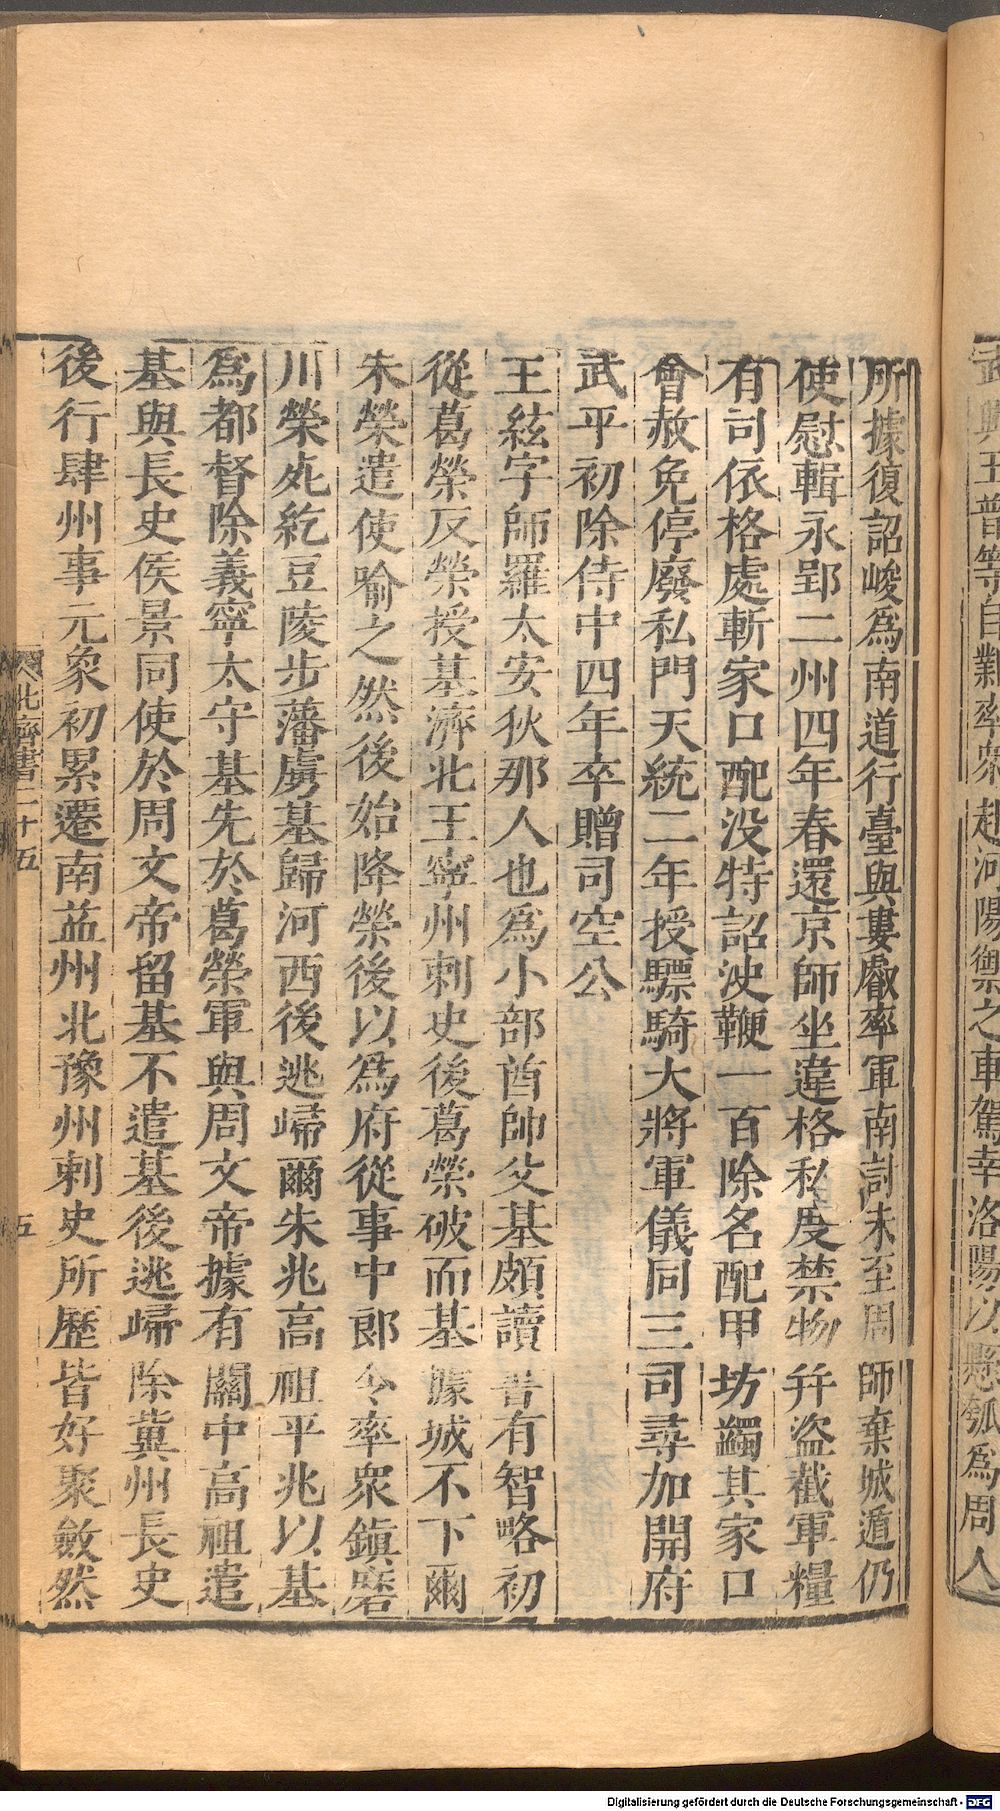 武興王普等自鄴率衆赴河陽禦之車駕幸洛陽以懸瓠爲周人
所據復詔峻爲南道行臺與婁叡率軍南討未至周師棄城遁仍
使慰輯永郢二州四年春還京師坐違格私度禁物幷盜截軍糧
有司依格處斬家口配没特詔決鞭一百除名配甲坊蠲其家口
會赦免停廢私門天統二年授驃騎大將軍儀同三司尋加開府
武平初除侍中四年卒贈司空公
王紘字師羅太安狄那人也爲小部酋帥父基頗讀書有智略初
從葛榮反榮授基濟北王寧州刺史後葛榮破而基據城不下爾
朱榮遣使喻之然後始降榮後以爲府從事中郎令率衆鎮磨
川榮死紇豆陵步藩虜基歸河西後逃歸爾朱兆高祖平兆以基
爲都督除義寧太守基先於葛榮軍與周文帝據有關中高祖遣
基與長史侯景同使於周文帝留基不遣基後逃歸除冀州長史
後行肆州事元象初累遷南益州北豫州刺史所歷皆好聚斂然
北齊書二十五 五
Digitalisierung gefördert durch die Deutsche Forschungsgemeinschaft - DFG